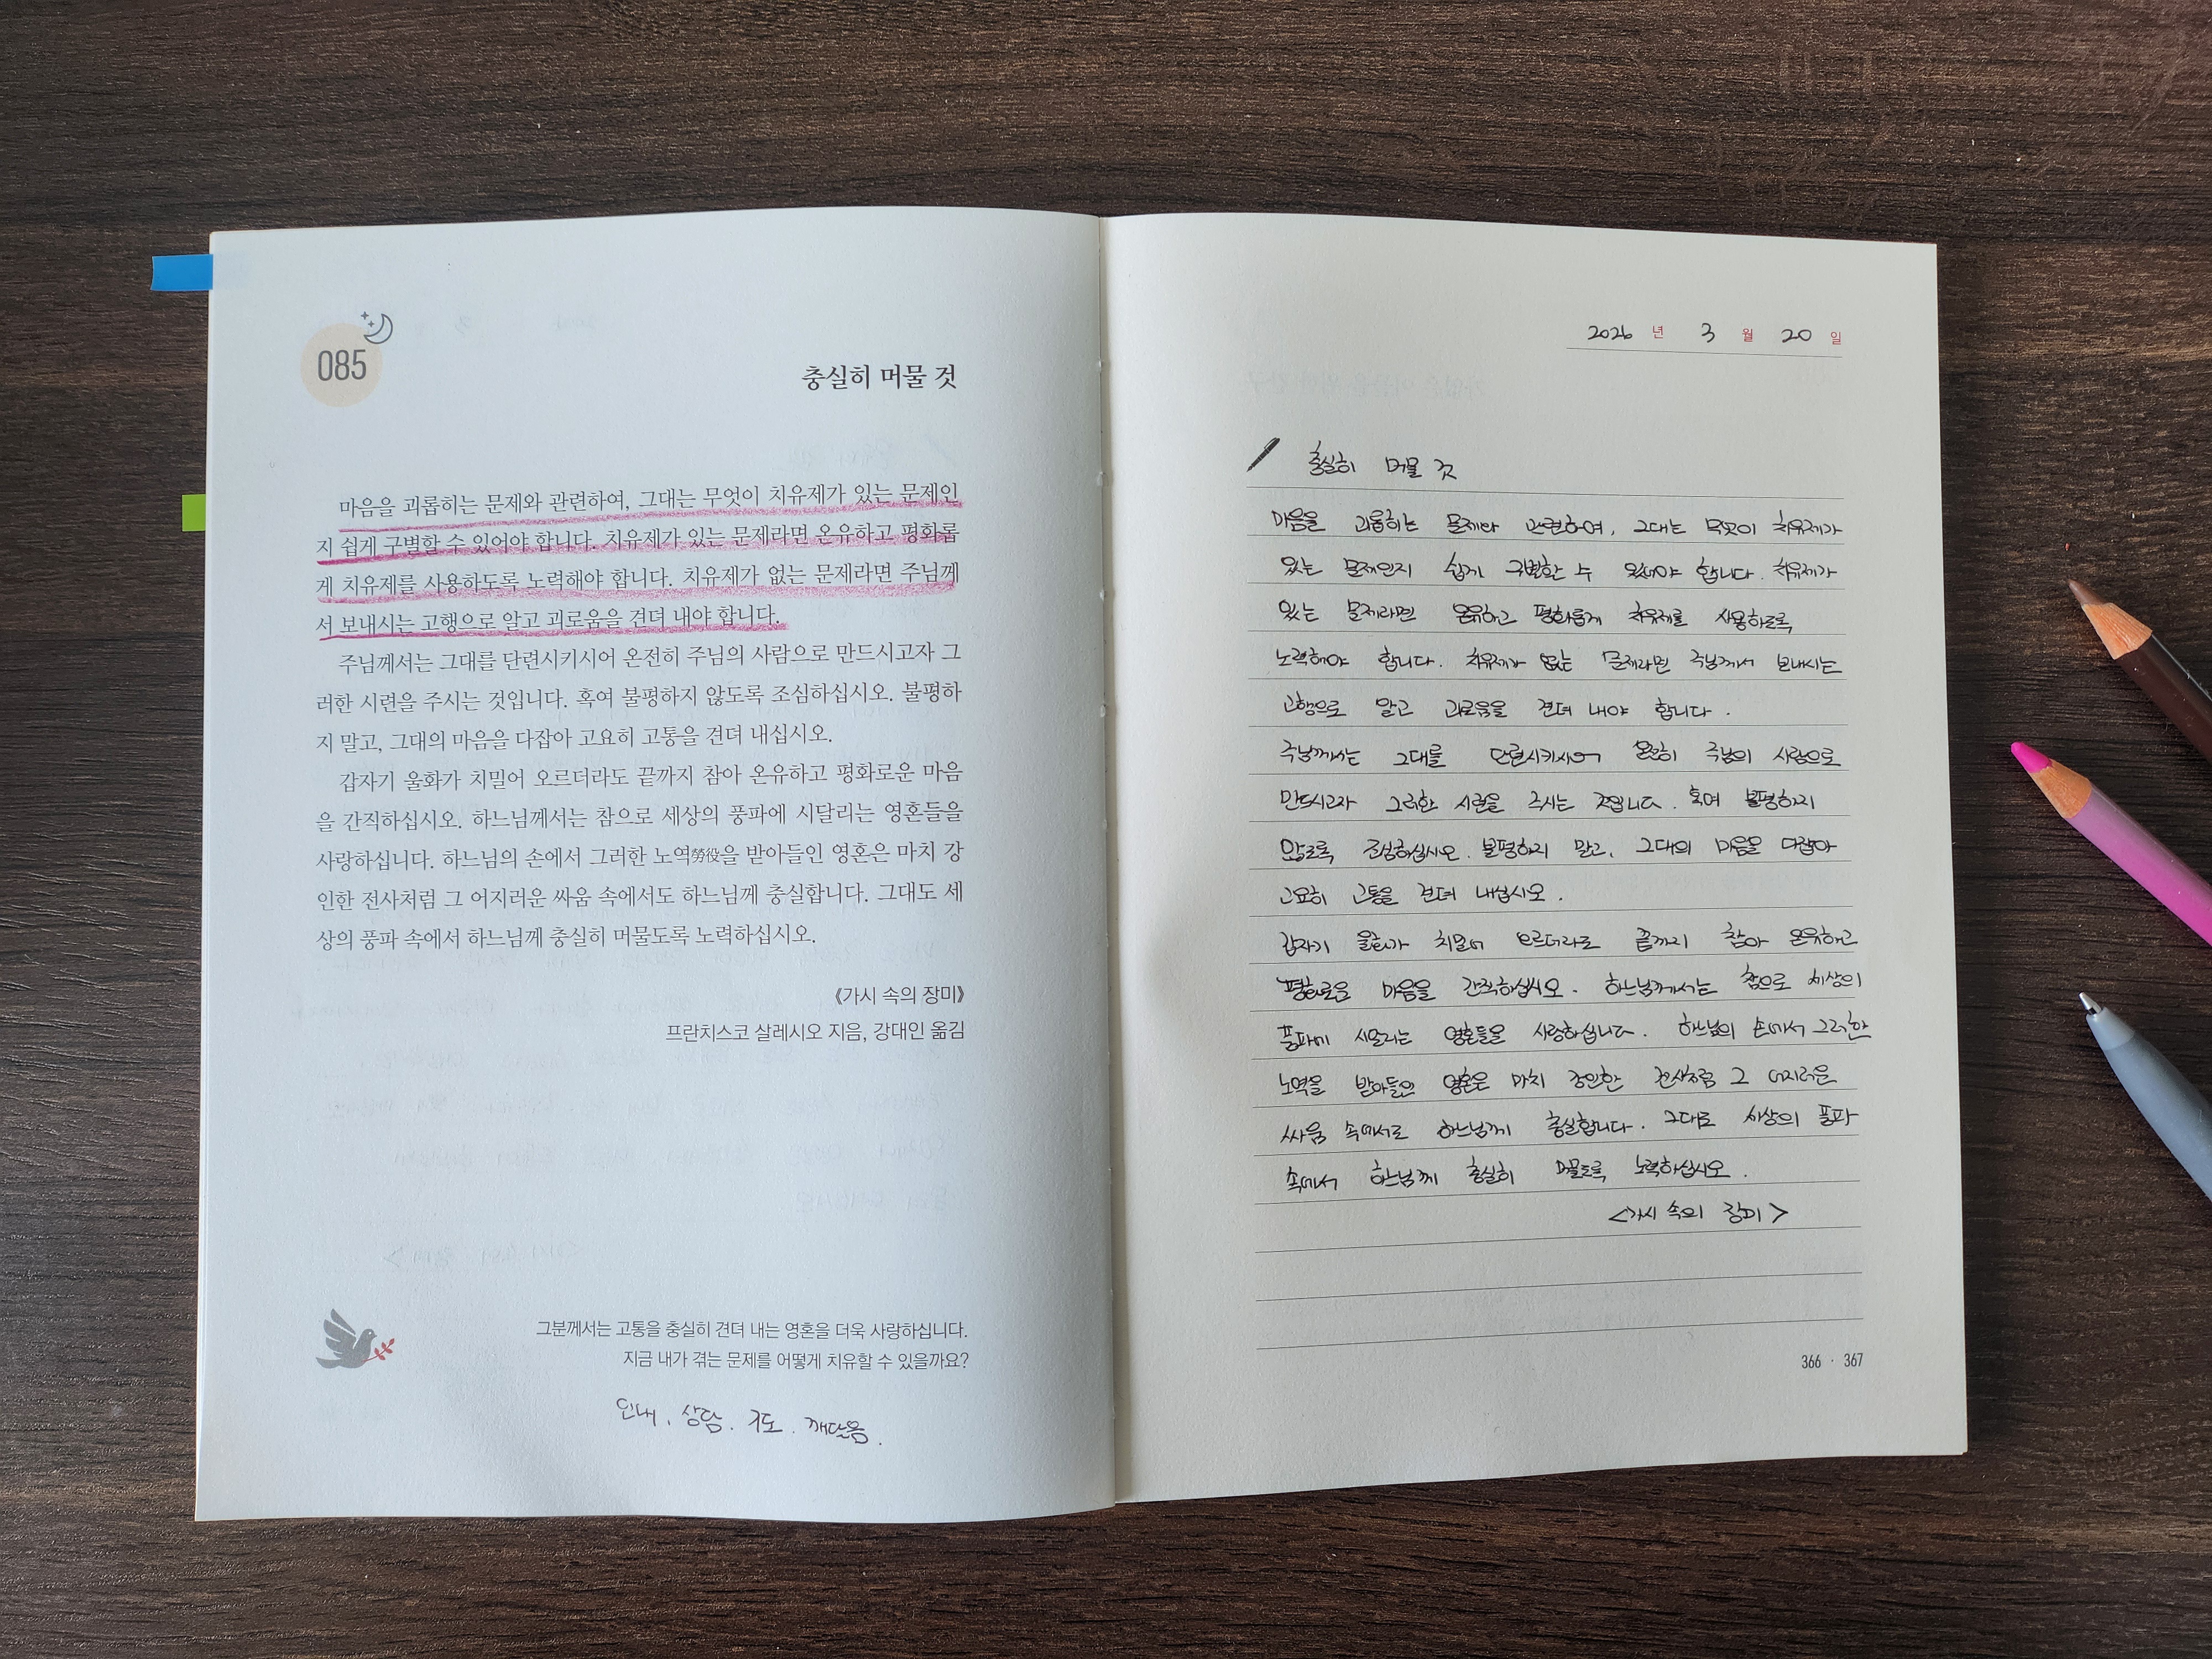 085
충실히 머물 것
마음을 괴롭히는 문제와 관련하여, 그대는 무엇이 치유제가 있는 문제인
지 쉽게 구별할 수 있어야 합니다. 치유제가 있는 문제라면 온유하고 평화롭
게 치유제를 사용하도록 노력해야 합니다. 치유제가 없는 문제라면 주님께
서 보내시는 고행으로 알고 괴로움을 견뎌 내야 합니다.
주님께서는 그대를 단련시키시어 온전히 주님의 사람으로 만드시고자 그
러한 시련을 주시는 것입니다. 혹여 불평하지 않도록 조심하십시오. 불평하
지 말고, 그대의 마음을 다잡아 고요히 고통을 견뎌 내십시오.
갑자기 울화가 치밀어 오르더라도 끝까지 참아 온유하고 평화로운 마음
을 간직하십시오. 하느님께서는 참으로 세상의 풍파에 시달리는 영혼들을
사랑하십니다. 하느님의 손에서 그러한 노역勞役을 받아들인 영혼은 마치 강
인한 전사처럼 그 어지러운 싸움 속에서도 하느님께 충실합니다. 그대도 세
상의 풍파 속에서 하느님께 충실히 머물도록 노력하십시오.
《가시 속의 장미》
프란치스코 살레시오 지음, 강대인 옮김
그분께서는 고통을 충실히 견뎌 내는 영혼을 더욱 사랑하십니다.
지금 내가 겪는 문제를 어떻게 치유할 수 있을까요?
인내, 상담. 기도. 깨달음.
2026 년 3 월 20 일
충실히 머물 것
마음을 괴롭히는 문제와 관련하여, 그대는 무엇이 치유제가
있는 문제인지 쉽게 구별할 수 있어야 합니다. 치유제가
있는 문제라면 온유하고 평화롭게 치유제를 사용하도록
노력해야 합니다. 치유제가 없는 문제라면 주님께서 보내시는
고행으로 알고 괴로움을 견뎌 내야 합니다.
주님께서는 그대를 단련시키시어 온전히 주님의 사람으로
만드시고자 그러한 시련을 주시는 것입니다. 혹여 불평하지
않도록 조심하십시오. 불평하지 말고, 그대의 마음을 다잡아
고요히 고통을 견뎌 내십시오.
갑자기 울화가 치밀어 오르더라도 끝까지 참아 온유하고
평화로운 마음을 간직하십시오. 하느님께서는 참으로 세상의
풍파에 시달리는 영혼들을 사랑하십니다. 하느님의 손에서 그러한
노역을 받아들인 영혼은 마치 강인한 전사처럼 그 어지러운
싸움 속에서도 하느님께 충실합니다. 그대도 세상의 풍파
속에서 하느님께 충실히 머물도록 노력하십시오.
<가시 속의 장미>
366 · 367